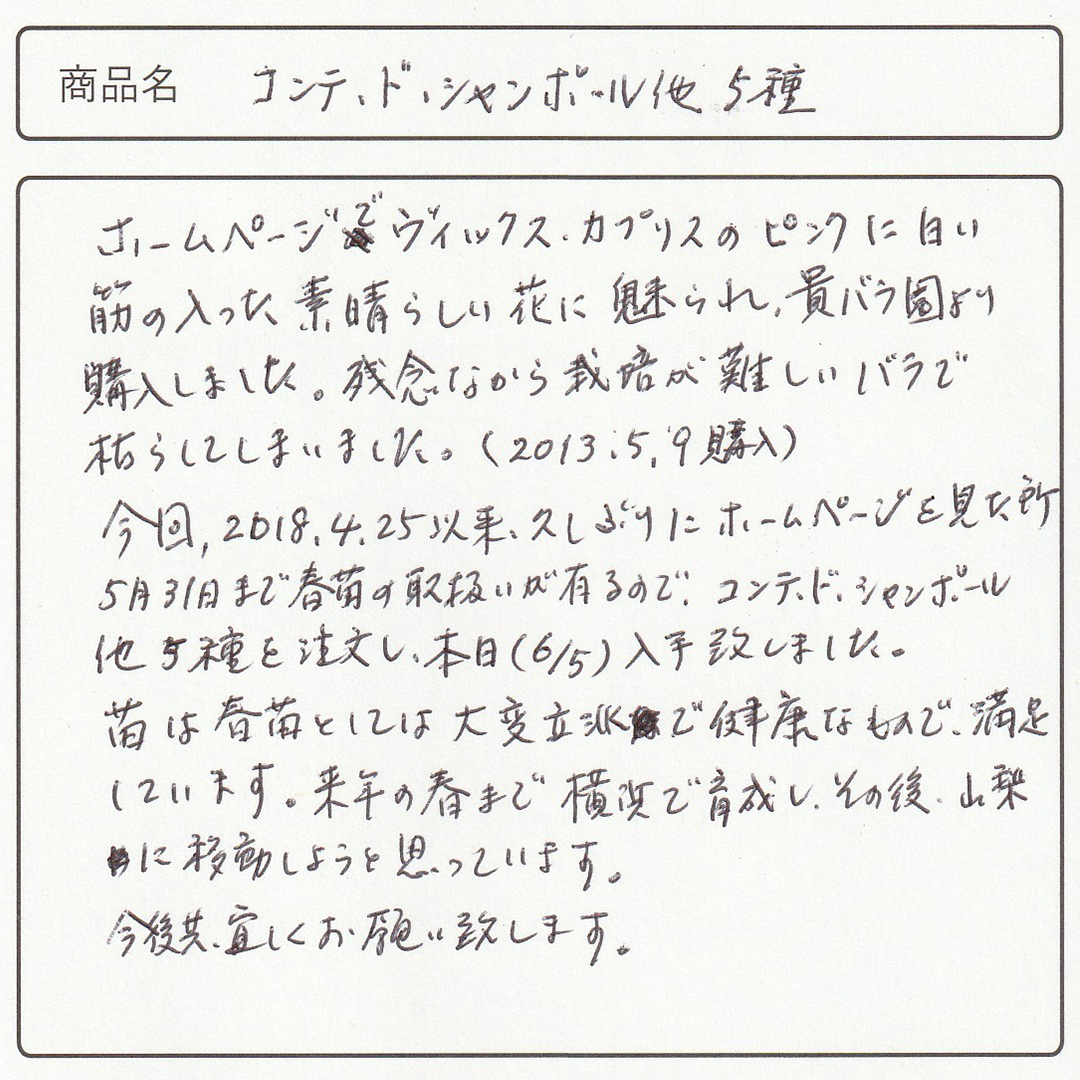 商品名 コンテ.ド.シャンボール他5種
ホームページでヴィックス.カプリスのピンクに白い
筋の入った素晴らしい花に魅られ、貴バラ園より
購入しました。残念ながら栽培が難しいバラで
枯らしてしまいました。(2013.5.9購入)
今回,2018.4.25以来、久しぶりにホームページを見た所
5月31日まで春苗の取扱いが有るので、コンテ.ド.シャンボール
他5種を注文し、本日(6/5)入手致しました。
苗は春苗としては大変立派で健康なもので、満足
しています。来年の春まで横浜で育成し、その後、山梨
に移動しようと思っています。
今後共、宜しくお願い致します。